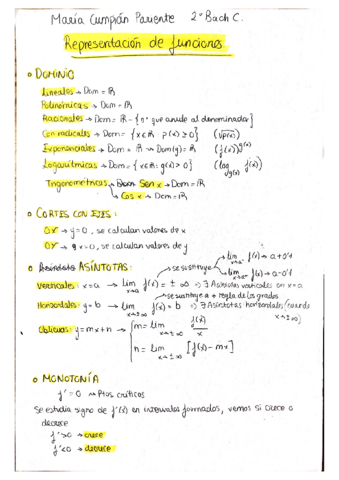 María Cumplán Pariente 2º Bach C.
Representación de funciones
• DOMINIO
Lineales → Dom = ℝ
Polinómicas → Dom = ℝ
Racionales → Dom = ℝ - {nº que anule al denominador}
Con radicales → Dom = {x∈ℝ : p(x) ≥ 0} (√p(x))
Exponenciales → Dom = ℝ → Dom(g) = ℝ (f(x))^g(x)
Logarítmicas → Dom = {x∈ℝ : g(x) > 0} (log f(x))
Trigonométricas → Sen x → Dom = ℝ
→ Cos x → Dom = ℝ
• CORTES CON EJES:
OX → y=0, se calculan valores de x
OY → x=0, se calculan valores de y
• ASÍNTOTAS:
→ se sustituye
Verticales: x=a → lim f(x) = ± ∞ ⇒ ∃ Asíntotas verticales en x=a
→ se sustituye a + regla de los grados
Horizontales: y=b → lim x→±∞ f(x) = b ⇒ ∃ Asíntotas horizontales (cuando x→±∞)
Oblicuas: y=mx+n → m = lim x→±∞ f(x)/x
n = lim x→±∞ [f(x) - mx]
• MONOTONÍA
f' = 0 → Ptos críticos
Se estudia signo de f'(x) en intervalos formados, vemos si crece o
decrece
f' > 0 → crece
f' < 0 → decrece